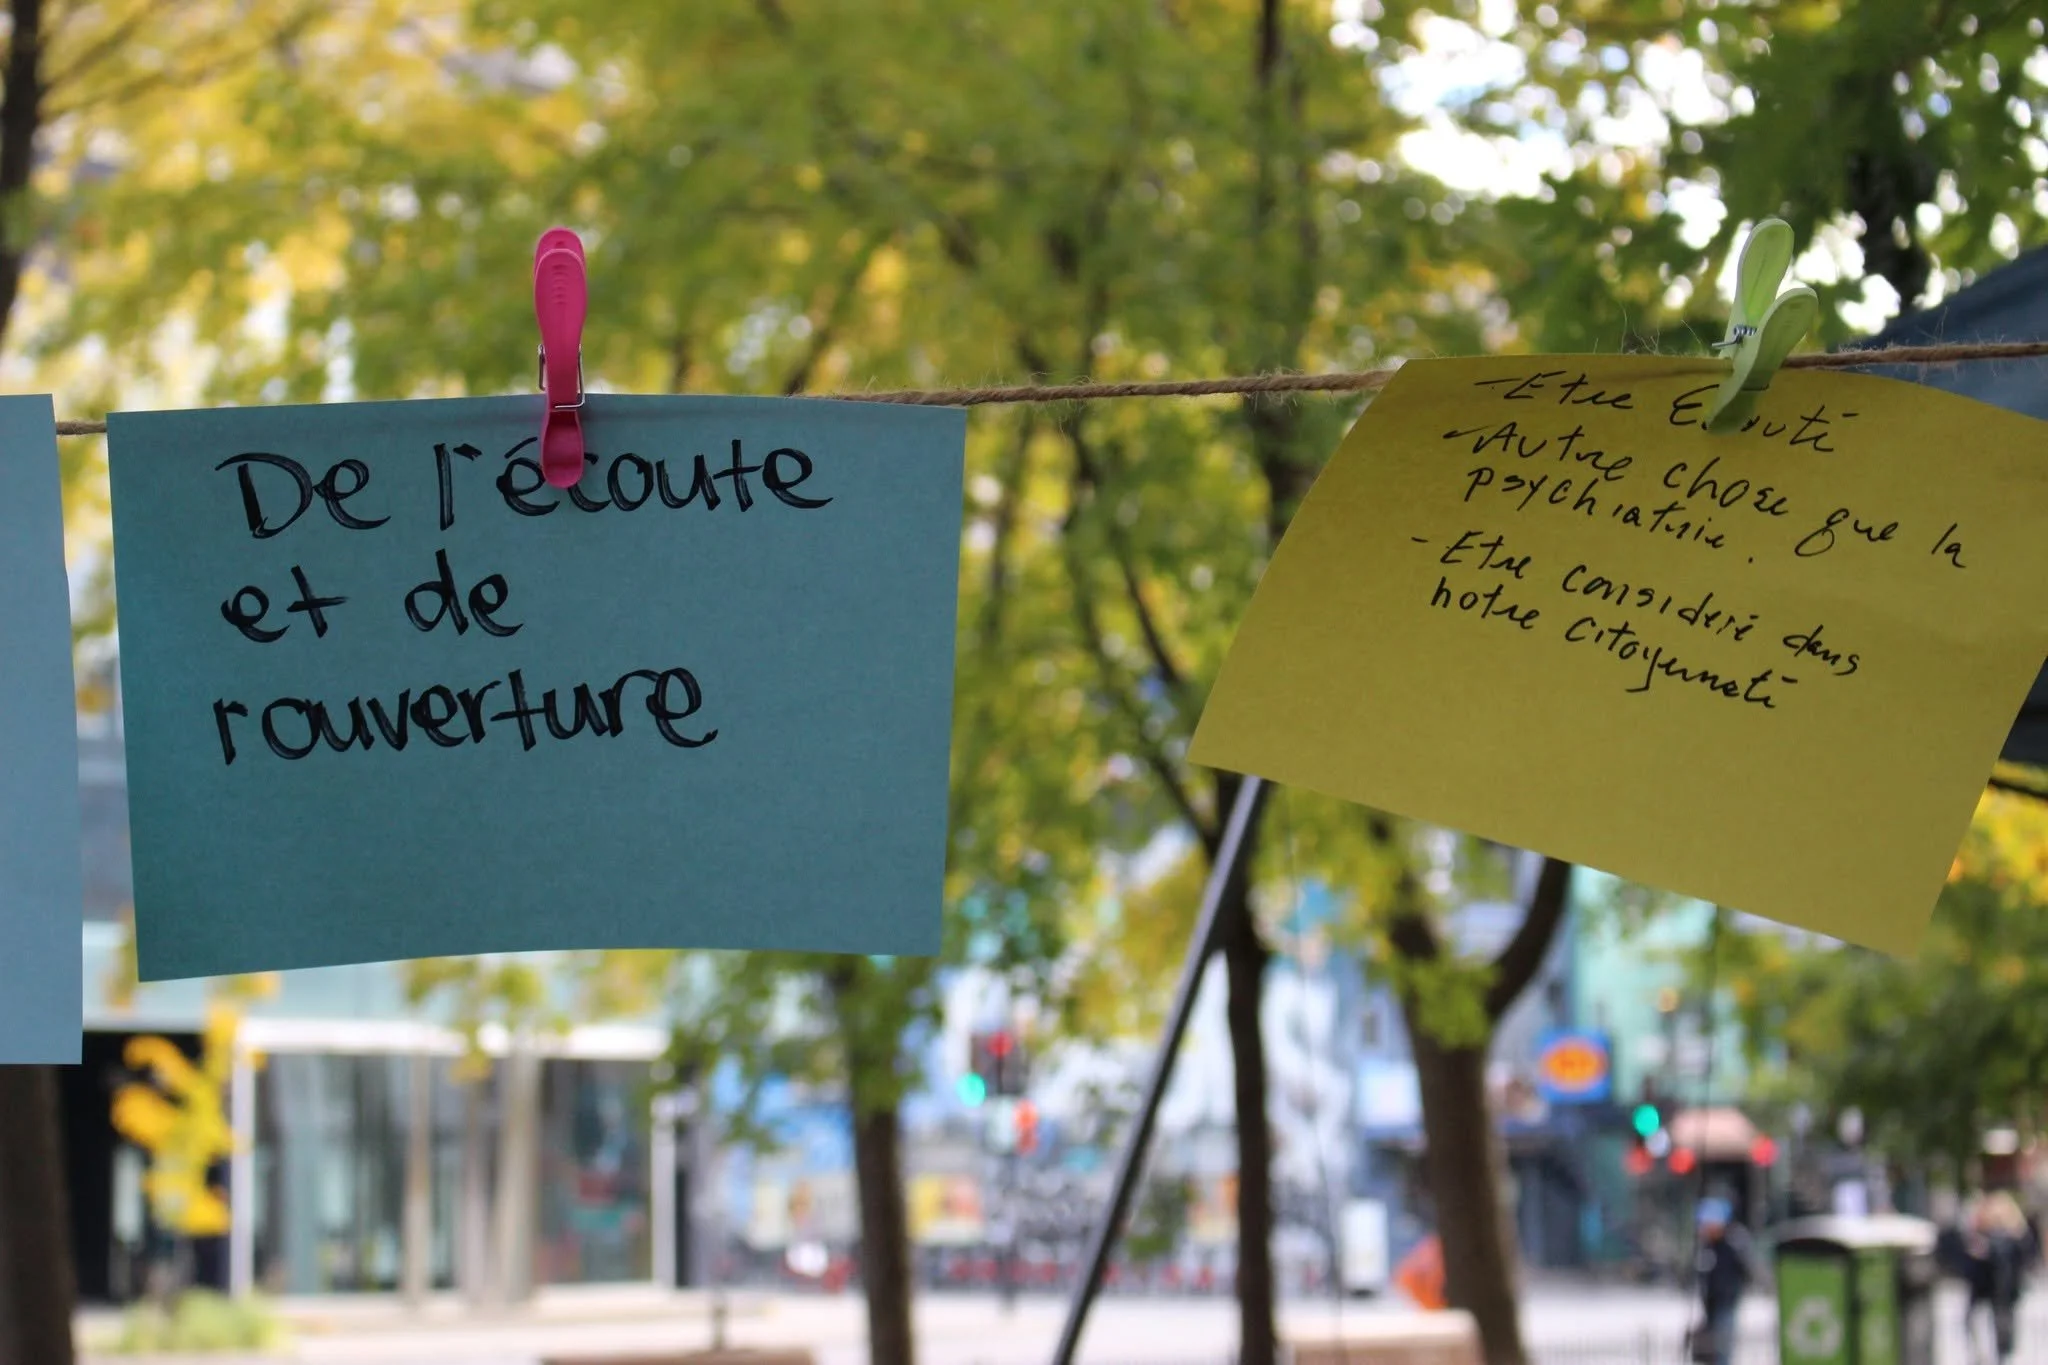 De l'écoute
et de
l'ouverture
- Etre Ecouté
- Autre chose que la
psychiatrie.
- Etre considéré dans
notre citoyenneté